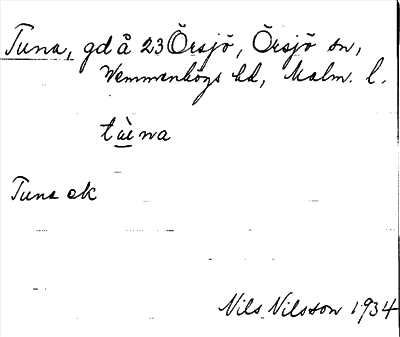 Tuna, gd å 23 Örsjö, Örsjö sn,
Vemmenhögs hd, Malm. l.
tùna
Tuna ek
Nils Nilsson 1934